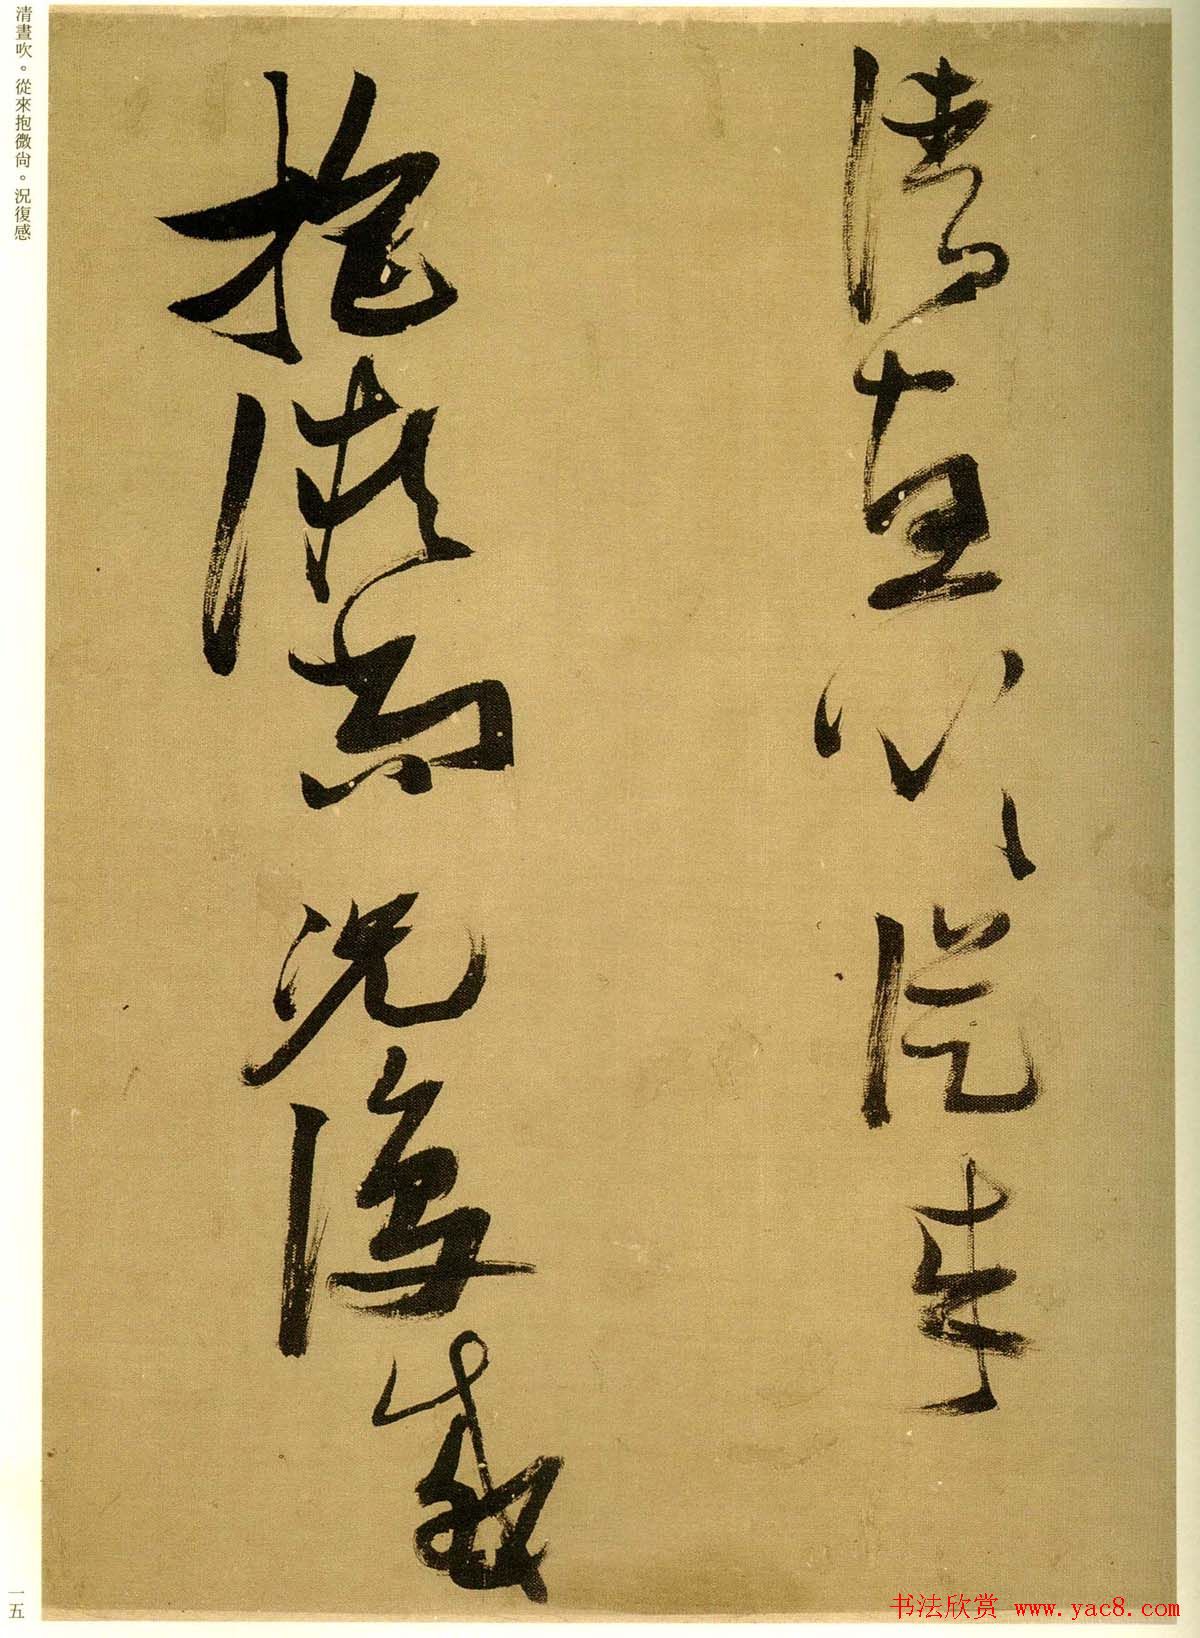 清晝吹從來
抱微尚況復感
清晝吹。從來抱微尙。況復感
一五
书法欣赏 www.yac8.com